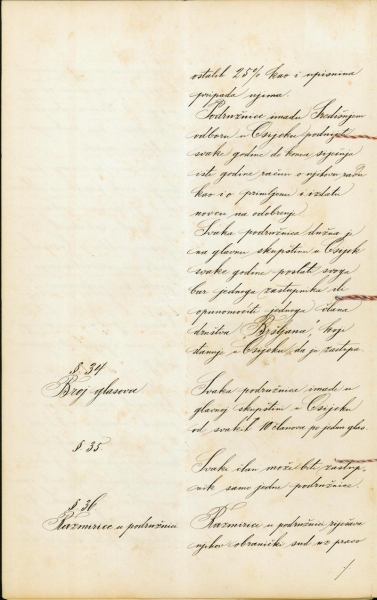 ostalih 25% kao i upisnina
pripada njima.
Podružnice imadu Središnjem
odboru u Osijeku podnijeti
svake godine do konca siječnja
iste godine račun o njihovu radu
kao i o primljenu i izdatu
novcu na odobrenje.
Svaka podružnica dužna je
na glavnu skupštinu u Osijek
svake godine poslati svoga
bar jednoga zastupnika ili
opunomoćiti jednoga člana
društva "Bršljana", koji
stanuje u Osijeku, da ju zastupa.
§ 34
Broj glasova
Svaka podružnica imade u
glavnoj skupštini u Osijeku
od svakih 10 članova po jedan glas.
§ 35.
Svaki član može biti zastup-
nik samo jedne podružnice.
§ 36.
Razmirice u podružnici
Razmirice u podružnici rješava
njihov obranički sud uz pravo